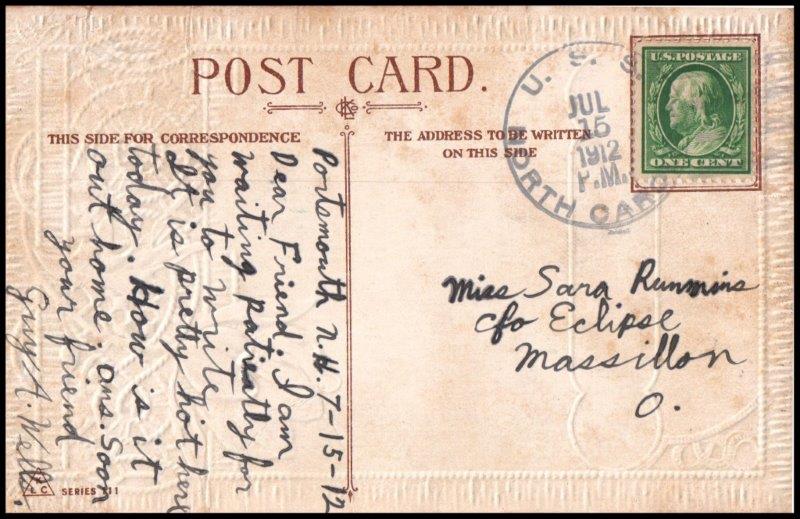 POST CARD.
THIS SIDE FOR CORRESPONDENCE
THE ADDRESS TO BE WRITTEN
ON THIS SIDE
U. S. S.
NORTH CARO
JUL
15
1912
P.M.
U.S. POSTAGE
ONE CENT
Portsmouth N.H. 7-15-12
Dear Friend. I am
waiting patiently for
you to write
It is pretty hot here
today. How is it
out home. ans. Soon
your friend
Guy A. Wells.
Miss Sara Rummins
c/o Eclipse
Massillon
O.
L C SERIES 111